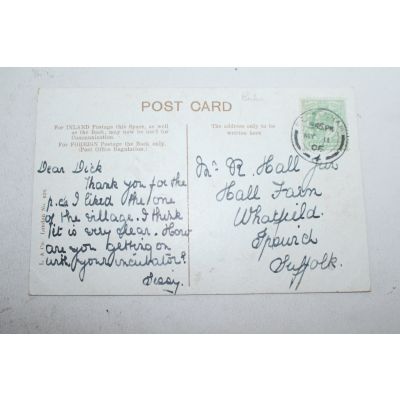 POST CARD
For INLAND Postage this Space, as well
as the Back, may now be used for
Communication.
For FOREIGN Postage the Back only.
(Post Office Regulation.)
The address only to be
written here
Dear Dick
Thank you for the
p.cs I liked the one
of the village. I think
it is very clear. How
are you getting on
with your incubator?
Sissy.
Mr. R. Hall Junr
Hall Farm
Whatfield.
Ipswich
Suffolk.
MY 11